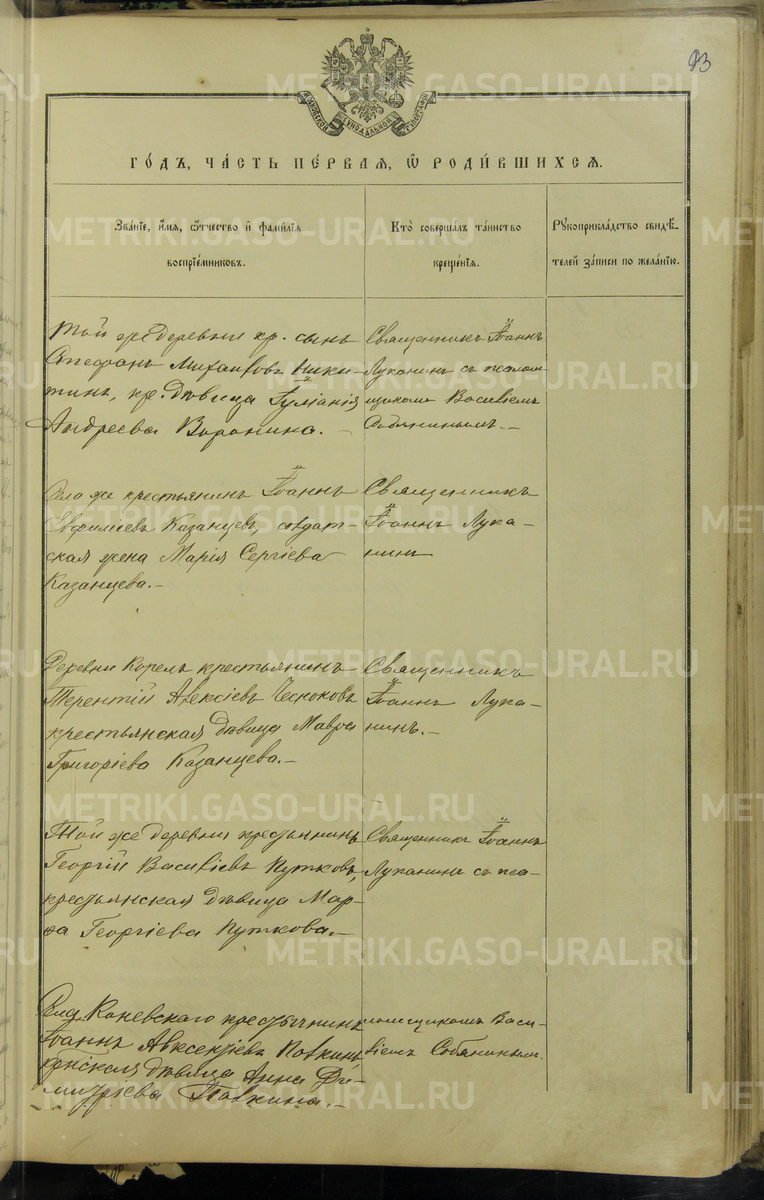 93
МОСКОВСКОЙ СѴНОДАЛЬНОЙ ТѴПОГРАФІИ
ГО́ДЪ, ЧА́СТЬ ПЕ́РВАЯ, Ѽ РОДИ́ВШИХСЯ.
Зва́нїе, и҆́мя, ѻ҆́тчество и҆ фами́лїя
воспрїе́мниковъ.
Кто̀ соверша́лъ та́инство
креще́нїя.
Рꙋкоприкла́дство свидѣ́-
телей за́писи по жела́нїю.
Той же деревни кр. сынъ
Стефанъ Михаиловъ Ники-
тинъ, кр. дѣвица Іуліанія
Андреева Воронина.
Священникъ Іоаннъ
Луканинъ съ псалом-
щикомъ Василіемъ
Собянинымъ.
Села же крестьянинъ Іоаннъ
Евфиміевъ Казанцевъ, солдат-
ская жена Марія Сергіева
Казанцева.
Священникъ
Іоаннъ Лука-
нинъ
Деревни Корелъ крестьянинъ
Терентій Алексіевъ Чесноковъ
крестьянская дѣвица Мавра
Григоріева Казанцева.
Священникъ
Іоаннъ Лука-
нинъ.
Той же деревни крестьянинъ
Георгій Василіевъ Путковъ,
крестьянская дѣвица Мар-
ѳа Георгіева Путкова.
Священникъ Іоаннъ
Луканинъ съ пса-
Села Коневскаго крестьянинъ
Іоаннъ Алексѣевъ Полкинъ
крестьянская дѣвица Анна Ди-
митріева Полкина.
ломщикомъ Васи-
ліемъ Собянинымъ.
METRIKI.GASO-URAL.RU